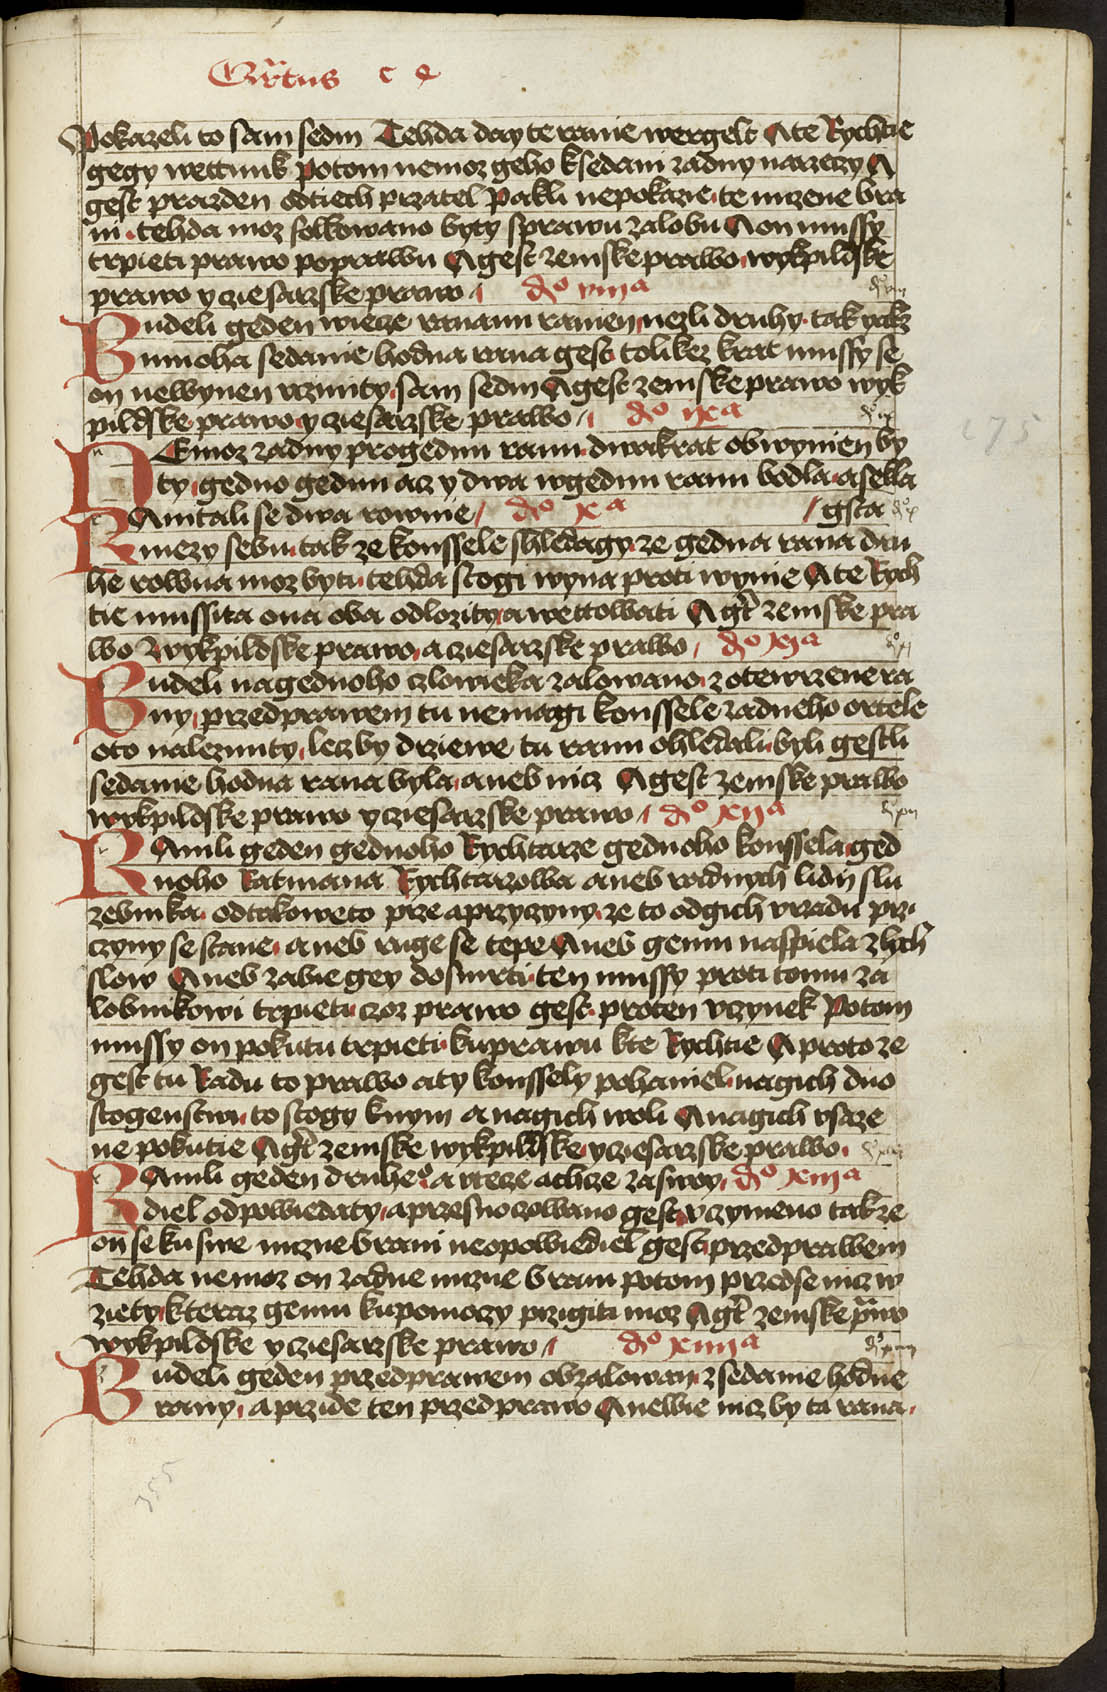 Qrtus c e
Pokazeli to sam sedm Tehda day te ranie wergelt A te Rychtie
gegy wettunk Potom nemoz geho ksedani zadny narzeczy A
gest prazden odtiech przatel Pakli nepokazie te mizene bra
ni tehda moz solkowano byty sprawu zalobu A on mussy
trpieti prawo poprawu A gest zemske prawo wykpildske
prawo y cziesarzske prawo do viiia
Budeli geden wiecze ranami ranien nezli druhy tak yakz
mnoha sedanie hodna rana gest tolikez krat mussy se
on newynen vczinity sam sedm A gest zemske prawo wyk
pildske prawo y cziesarzske prawo do ixa
NEmoz zadny progednu ranu dwakrat obwynien by
ty gedno gednu acz y dwa wgednu ranu bodla a sekla
Ranitali se dwa rownie do xa gsta
mezy sebu tak ze konssele shledagy ze gedna rana dru
he rowna moz bytu tehda stogi wyna proti wynie A te Rych
tie mussita ona oba odlozity a wettowati A gest zemske pra
wo wykpildske prawo a cziesarzske prawo do xia
Budeli nagednoho czlowieka zalowano zotewrzene ra
ny przedprawem tu nemagi konssele zadneho ortele
oto naleznuty lecz by drziewe tu ranu ohledali byli gestli
sedanie hodna rana byla aneb nicz A gest zemske prawo
wykpildske prawo y cziesarzske prawo do xiia
Ranili geden gednoho Rychtarze gednoho konssela ged
noho Ratmana Rychtarzowa aneb radnych lidij slu
zebnika odtakoweto prze a przyczyny ze to odgich vrzadu przi
czyny se stane aneb ruge se tepe Aneb gemu naspiela zlych
slow Aneb zabie gey do smrti ten mussy proti tomu za
lobnikowi trpieti czoz prawo gest proten vczynek Potom
mussy on pokutu trpieti kuprawu kte Rychtie A proto ze
gest tu Radu to prawo a ty konssely pohaniel nagich duo
stogenstwi to stogy knym a nagich woli A nagich vsaze
ne pokutie A gest zemske wykpildske y cziesarzske prawo
Ranili geden druheo a vtecze a chcze zaswoy do xiiia
diel odpowiedaty a przesno zowano gest vczyneno takze
on se ku swe mizne brani neopowiediel gest przedprawem
Tehda nemoz on zadne mizne brani potom przedse nicz w
ziety kteraz gemu kupomoczy przigiti moz A gest zemske prawo
wykpildske y cziesarzske prawo do xiiiia
Budeli geden przedprawem obzalowan zsedanie hodne
rany a przide ten przed prawo A newie nicz by ta rana
275
355